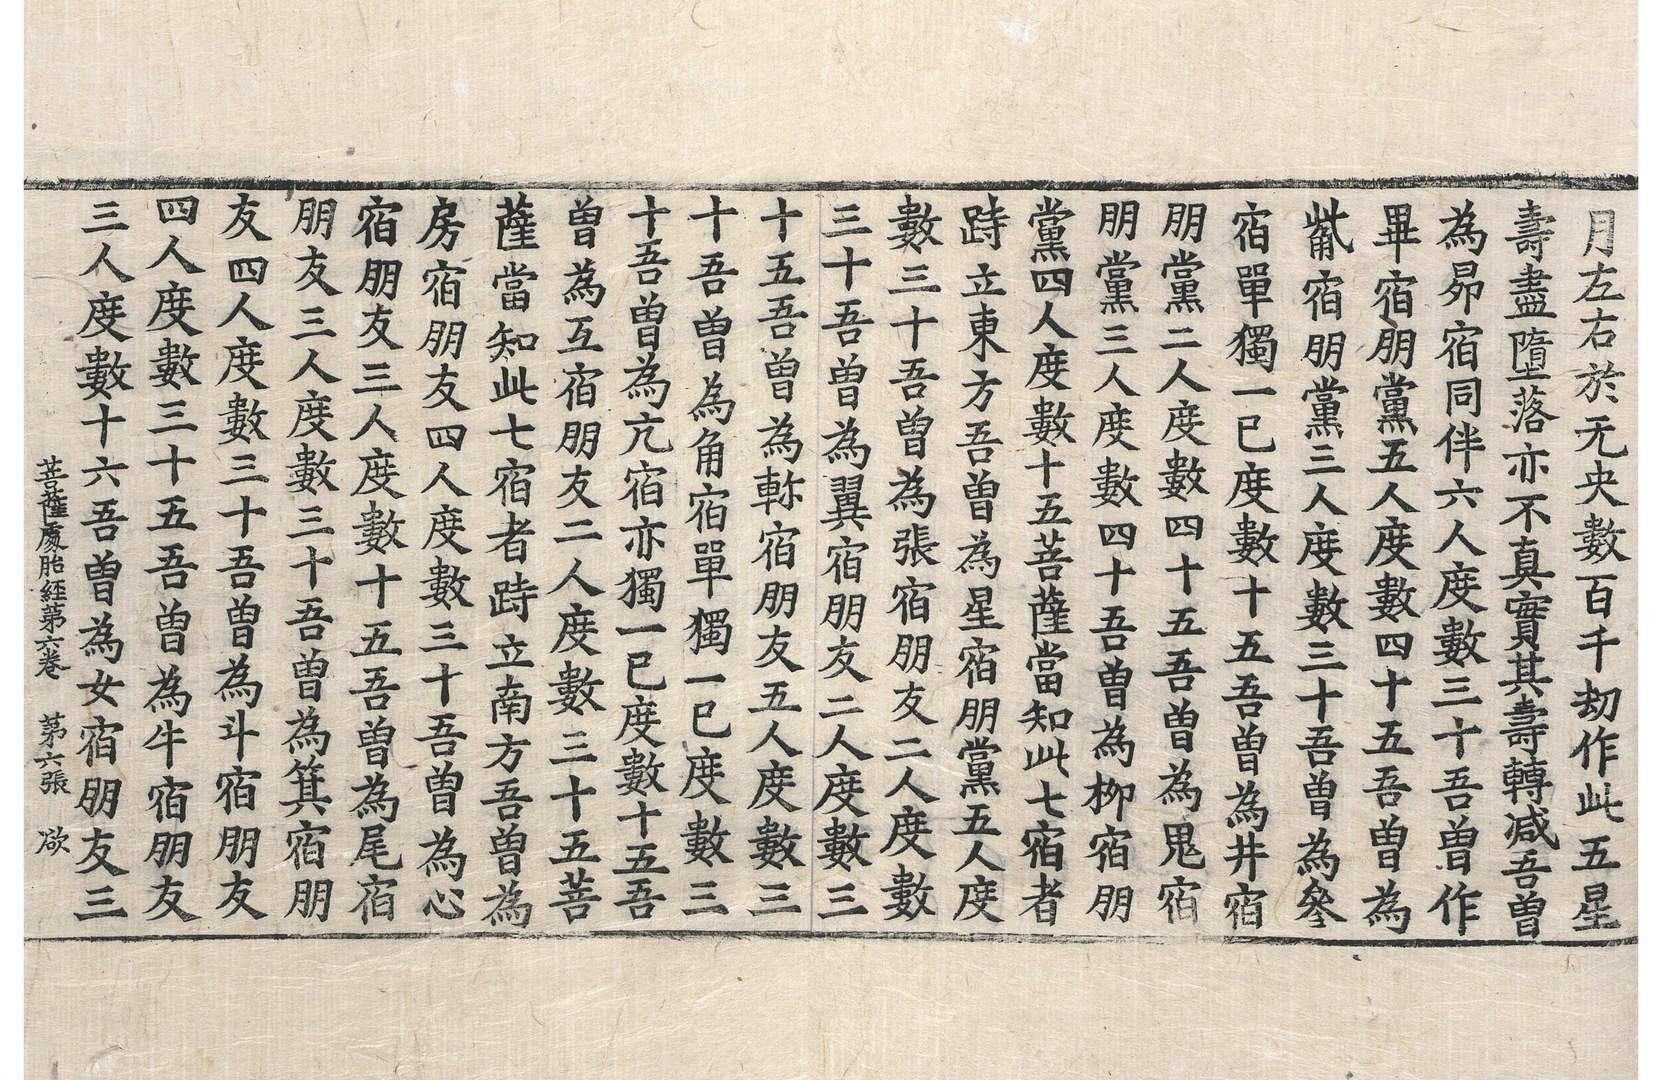 月左右於无央數百千劫作此五星
壽盡墮落亦不真實其壽轉減吾曾
為昴宿同伴六人度數三十吾曾作
畢宿朋黨五人度數四十五吾曾為
觜宿朋黨三人度數三十吾曾為參
宿單獨一已度數十五吾曾為井宿
朋黨二人度數四十五吾曾為鬼宿
朋黨三人度數四十吾曾為柳宿朋
黨四人度數十五菩薩當知此七宿者
跱立東方吾曾為星宿朋黨五人度
數三十吾曾為張宿朋友二人度數
三十吾曾為翼宿朋友二人度數三
十五吾曾為軫宿朋友五人度數三
十吾曾為角宿單獨一已度數三
十吾曾為亢宿亦獨一已度數十五吾
曾為互宿朋友二人度數三十五菩
薩當知此七宿者跱立南方吾曾為
房宿朋友四人度數三十吾曾為心
宿朋友三人度數十五吾曾為尾宿
朋友三人度數三十吾曾為箕宿朋
友四人度數三十吾曾為斗宿朋友
四人度數三十五吾曾為牛宿朋友
三人度數十六吾曾為女宿朋友三
菩薩處胎經第六卷 第六張 欲